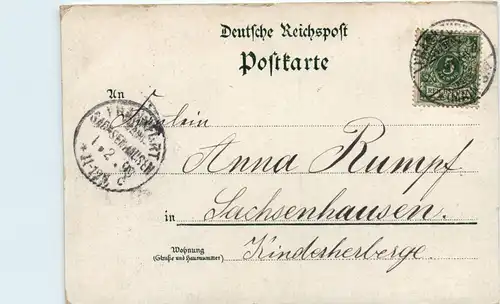 Deutsche Reichspost
Postkarte
An Fräulein
Anna Rumpf
in Sachsenhausen.
Wohnung
(Straße und Hausnummer)
Kinderherberge.
FRANKFURT
SACHSENHAUSEN
1.2.
5